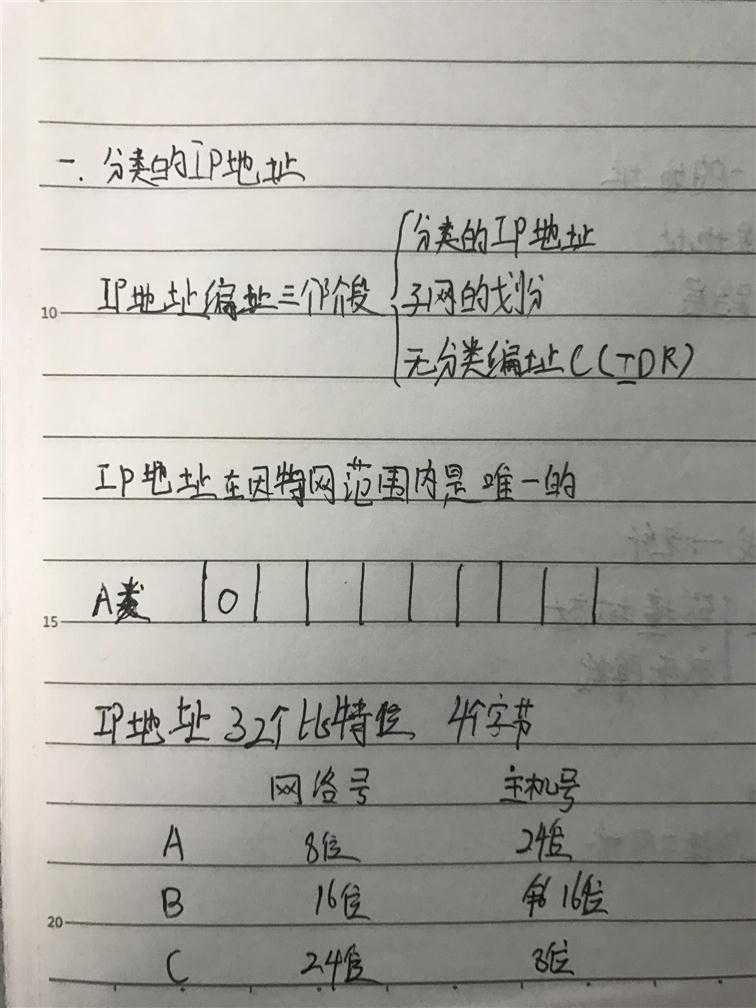 一.分类的IP地址
分类的IP地址
IP地址编址三个阶段 子网的划份
无分类编址C(IDR)
10
IP地址在因特网范围内是唯一的
A类 0
15
IP地址 32个比特位 4个字节
网络号 主机号
A 8位 24位
B 16位 16位
20
C 24位 8位